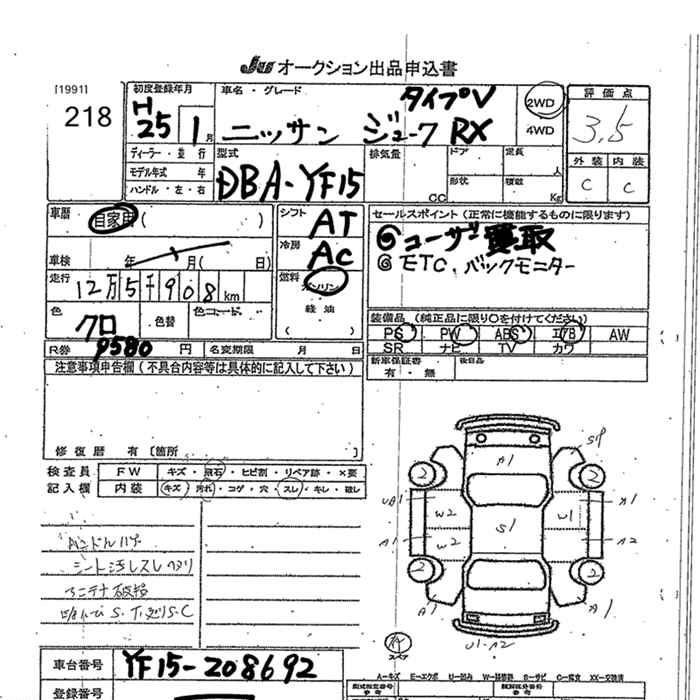 JU オークション出品申込書
[1991]
218
初度登録年月
H
25 1 月
車名・グレード
タイプV
ニッサン ジューク RX
2WD
4WD
評価点
3,5
外装 内装
C C
ディーラー・並行
モデル年式 年
ハンドル・左・右
型式
DBA-YF15
排気量
CC
ドア
形状
定員
人
積載
Kg
車歴
自家用 ( )
車検 年 月( 日)
走行
12万5千908km
色
クロ
色替
色コード
シフト
AT
冷房
AC
燃料
ガソリン
軽油
( )
セールスポイント(正常に機能するものに限ります)
◎ユーザー買取
◎ETC、バックモニター
装備品(純正品に限り○を付けてください)
PS PW ABS エアB AW
SR ナビ TV カワ
R券 9580 円
名変期限 月 日
新車保証書
有・無
後日品
注意事項申告欄(不具合内容等は具体的に記入して下さい)
修復歴 有〔箇所 〕
検査員
記入欄
FW キズ・飛石・ヒビ割・リペア跡・×要
内装 キズ・汚れ・コゲ・穴・スレ・キレ・破レ
ハンドルハゲ
シート汚しスレヘタリ
アンテナ破損
A1
SP
2 2
UA1 W2 W2
S1
U1
A1
A2
A1
2 2
A1
A1
U1・A2
車台番号 YF15-208692
登録番号
A−キズ E−エクボ U−凹み W−補修跡 S−サビ C−腐食 XX−交換済
型式指定番号
類別区分番号